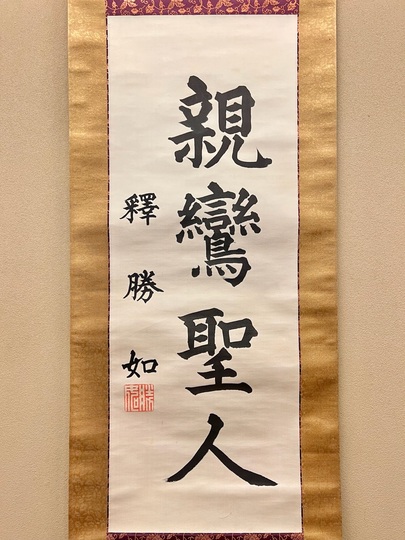 親鸞聖人
釋勝如